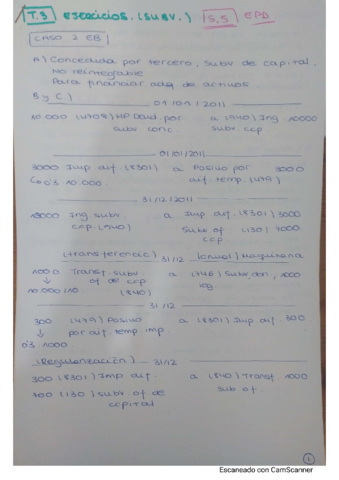 T.3 Ejercicios. (SUBV.) S.S EPD.
CASO 2 EB
A) Concedida por tercero, Subv de capital.
No reintegrable
Para financiar adq. de activos.
B y C)
01/01/2011
10.000 (4708) HP Deud. por a (940) Ing 10000
subv. conc subv. ccp
01/01/2011
3000 Imp dif. (8301) a Pasivo por 3000
0'3 10.000. dif temp. (479)
31/12/2011
10000 Ing subv. a Imp dif. (8301) 3000
ccp. (940) Subv of (130) 7000
ccp
(transferencia) 31/12 (anual) Maquinaria
1000 Transf. subv a (746) Subv don, 1000
of de ccp leg
10.000/10 (840)
31/12
300 (479) Pasivo a (8301) Imp dif. 300
por dif. temp. imp.
0'3. 1000.
(Regularización) 31/12
300 (8301) Imp dif. a (840) Transf. 1000
700 (130) subv of de sub of.
capital
1
Escaneado con CamScanner